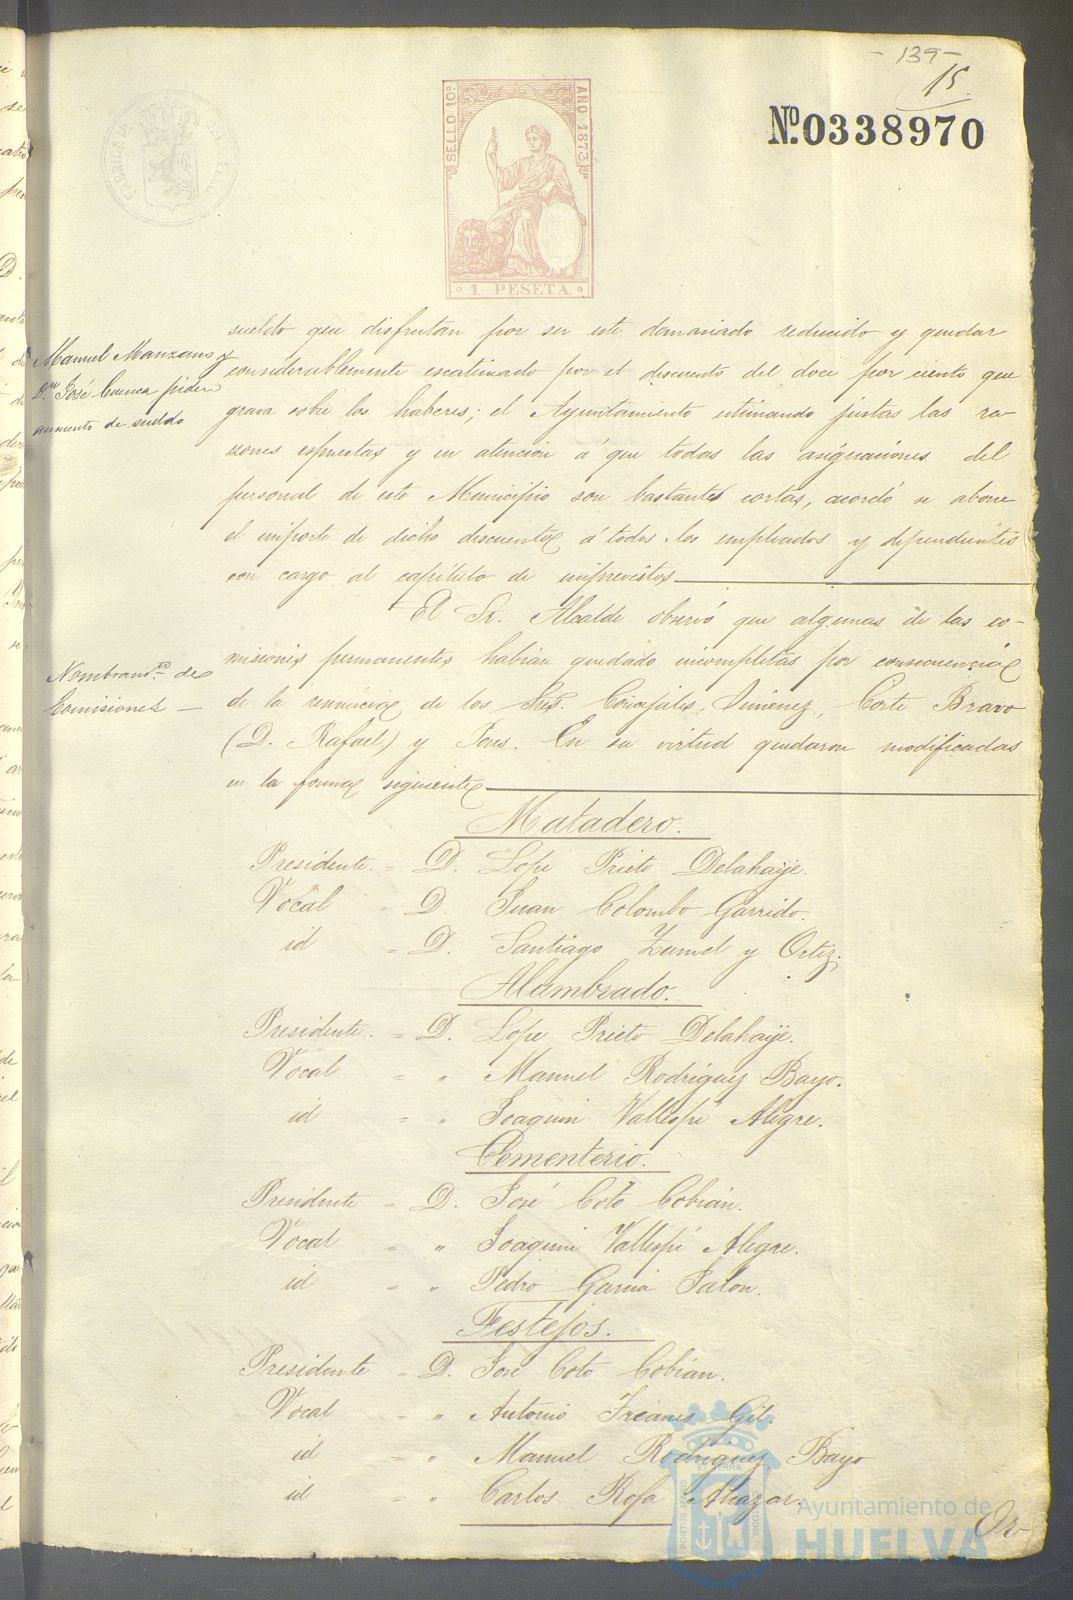 - 139 -
15
SELLO 10º
AÑO 1873
1 PESETA
Nº 0338970
Manuel Manzano y
Dn José Cuenca piden
aumento de sueldo
sueldo que disfrutan por ser este demasiado reducido y quedar
considerablemente escatimado por el descuento del doce por ciento que
grava sobre los haberes; el Ayuntamiento estimando justas las ra-
zones espuestas y en atencion á que todas las asignaciones del
personal de este Municipio son bastantes cortas, acordó se abone
el importe de dicho descuento á todos los empleados y dependientes
con cargo al capítulo de imprevistos
Nombramto de
Comisiones
El Sr. Alcalde observó que algunas de las co-
misiones permanentes habian quedado incompletas por consecuencia
de la renuncia de los Sres. Concejales, Jiménez, Corte Bravo
(D. Rafael) y Pons. En su virtud quedaron modificadas
en la forma siguiente
Matadero.
Presidente. = D. Lope Prieto Delahaije.
Vocal = D. Juan Colombo Garrido.
id = D. Santiago Zumel y Ortiz.
Alumbrado.
Presidente. = D. Lope Prieto Delahaije.
Vocal = " Manuel Rodriguez Bayo.
id = " Joaquin Vallespí Alegre.
Cementerio.
Presidente = D. José Coto Cobian.
Vocal = " Joaquin Vallespí Alegre.
id = " Pedro Garcia Jalon.
Festejos.
Presidente = D. José Coto Cobian.
Vocal = " Antonio Gil.
id = " Manuel Rodriguez Bayo
id = " Carlos Rofa
Or-
Ayuntamiento de
HUELVA